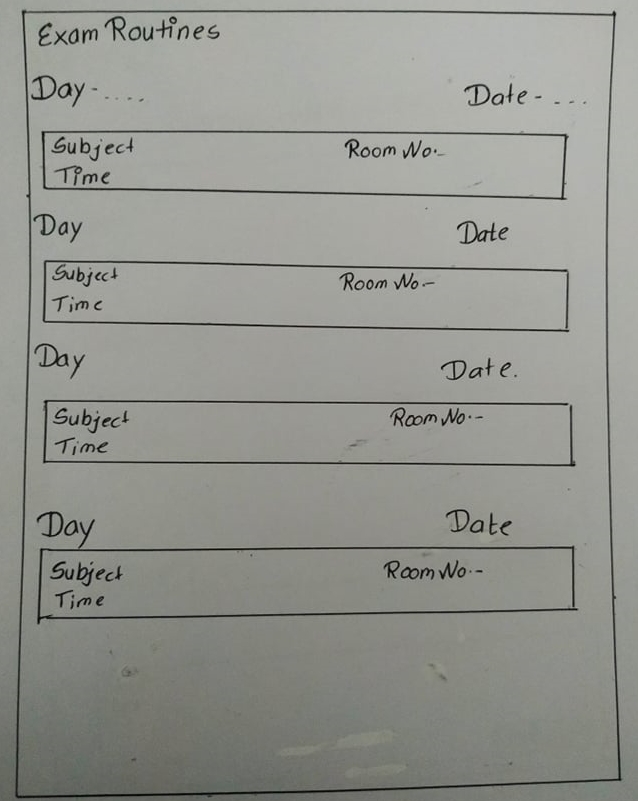 Exam Routines
Day-.... Date-...
Subject Room No.-
Time
Day Date
Subject Room No.-
Time
Day Date.
Subject Room No.-
Time
Day Date
Subject Room No.-
Time